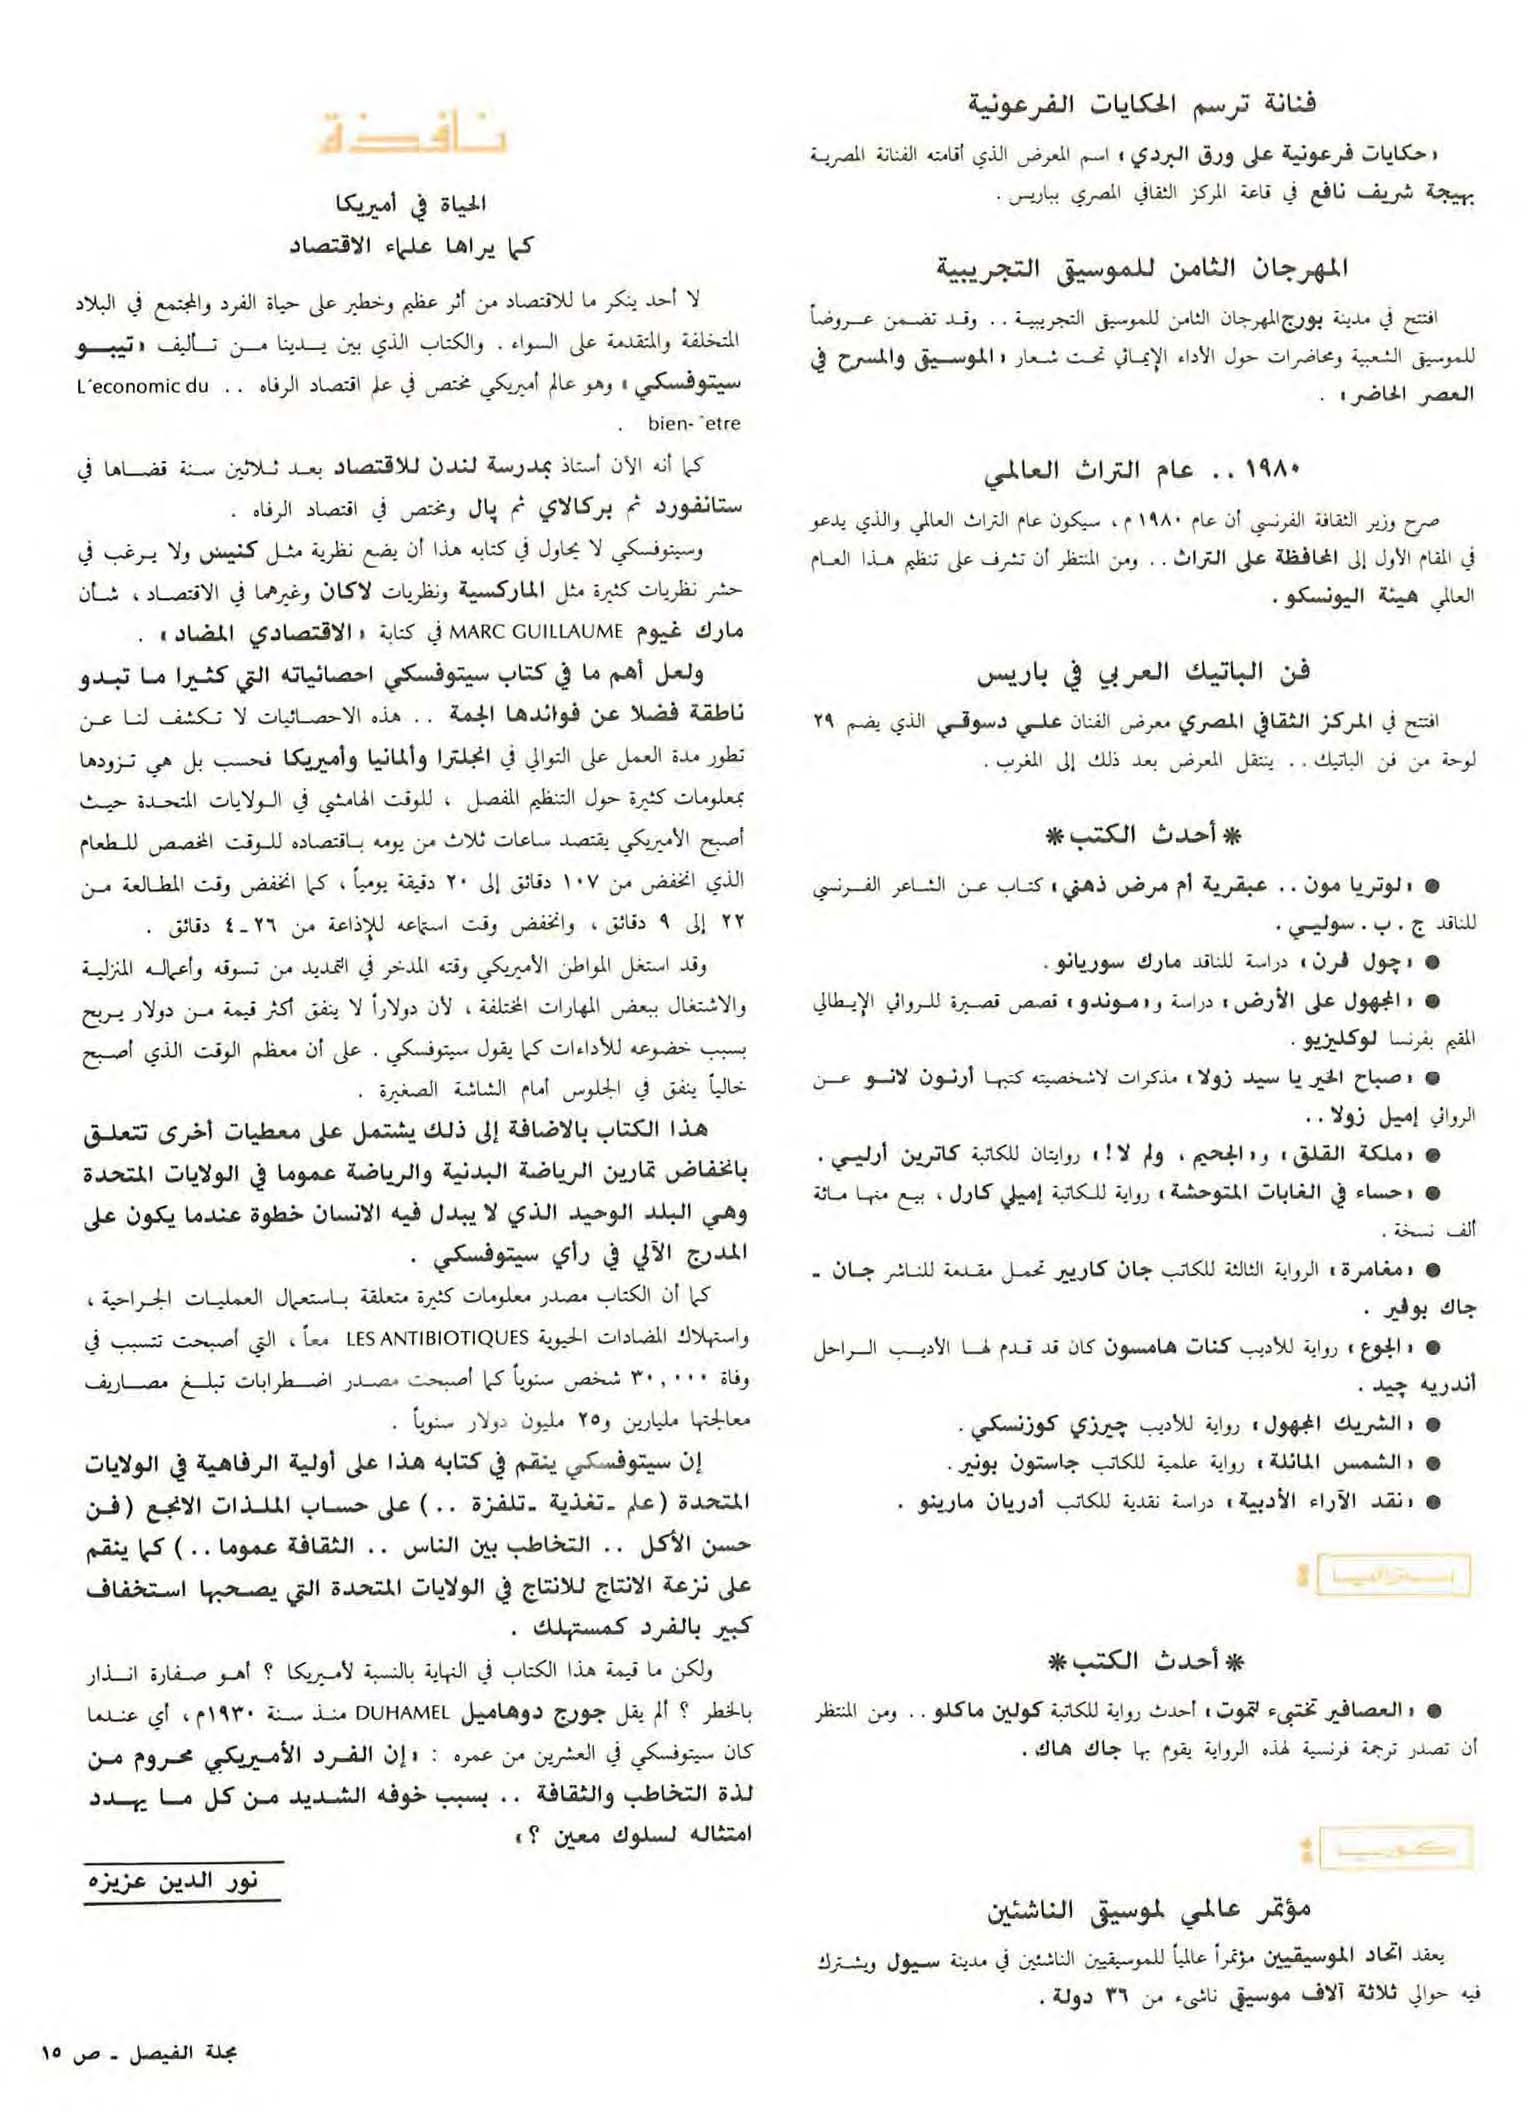 فنانة ترسم الحكايات الفرعونية
«حكايات فرعونية على ورق البردي» اسم المعرض الذي أقامته الفنانة المصرية
بهيجة شريف نافع في قاعة المركز الثقافي المصري بباريس .
المهرجان الثامن للموسيقى التجريبية
افتتح في مدينة بورج المهرجان الثامن للموسيقى التجريبية . . وقد تضمن عروضاً
للموسيقى الشعبية ومحاضرات حول الأداء الإيمائي تحت شعار «الموسيقى والمسرح في
العصر الحاضر» .
١٩٨٠ . . عام التراث العالمي
صرح وزير الثقافة الفرنسي أن عام ١٩٨٠ م ، سيكون عام التراث العالمي والذي يدعو
في المقام الأول إلى المحافظة على التراث . . ومن المنتظر أن تشرف على تنظيم هذا العام
العالمي هيئة اليونسكو .
فن الباتيك العربي في باريس
افتتح في المركز الثقافي المصري معرض الفنان علي دسوقي الذي يضم ٢٩
لوحة من فن الباتيك . . ينتقل المعرض بعد ذلك إلى المغرب .
* أحدث الكتب *
● «لوتريا مون . . عبقرية أم مرض ذهني» كتاب عن الشاعر الفرنسي
للناقد ج . ب . سوليي .
● «چول ڤرن» دراسة للناقد مارك سوريانو .
● «المجهول على الأرض» دراسة و«موندو» قصص قصيرة للروائي الإيطالي
المقيم بفرنسا لوكليزيو .
● «صباح الخير يا سيد زولا» مذكرات لاشخصيته كتبها أرنون لانو عن
الروائي إميل زولا . .
● «ملكة القلق» و«الجحيم ، ولم لا !» روايتان للكاتبة كاترين أرليي .
● «حساء في الغابات المتوحشة» رواية للكاتبة إميلي كارل ، بيع منها مائة
ألف نسخة .
● «مغامرة» الرواية الثالثة للكاتب جان كاريير تحمل مقدمة للناشر جان -
جاك بوڤير .
● «الجوع» رواية للأديب كنات هامسون كان قد قدم لها الأديب الراحل
أندريه چيد .
● «الشريك المجهول» رواية للأديب چيرزي كوزنسكي .
● «الشمس المائلة» رواية علمية للكاتب جاستون بونير .
● «نقد الآراء الأدبية» دراسة نقدية للكاتب أدريان مارينو .
استراليا :
* أحدث الكتب *
● «العصافير تختبىء لتموت» أحدث رواية للكاتبة كولين ماكلو . . ومن المنتظر
أن تصدر ترجمة فرنسية لهذه الرواية يقوم بها جاك هاك .
كوريا :
مؤتمر عالمي لموسيقى الناشئين
يعقد اتحاد الموسيقيين مؤتمراً عالمياً للموسيقيين الناشئين في مدينة سيول ويشترك
فيه حوالي ثلاثة آلاف موسيقي ناشىء من ٣٦ دولة .
نافذة
الحياة في أميريكا
كما يراها علماء الاقتصاد
لا أحد ينكر ما للاقتصاد من أثر عظيم وخطير على حياة الفرد والمجتمع في البلاد
المتخلفة والمتقدمة على السواء . والكتاب الذي بين يدينا من تأليف «تيبو
سيتوفسكي» وهو عالم أميريكي مختص في علم اقتصاد الرفاه . . L´economic du
bien-ˆetre .
كما أنه الآن أستاذ بمدرسة لندن للاقتصاد بعد ثلاثين سنة قضاها في
ستانفورد ثم بركالاي ثم يال ومختص في اقتصاد الرفاه .
وسيتوفسكي لا يحاول في كتابه هذا أن يضع نظرية مثل كنيس ولا يرغب في
حشر نظريات كثيرة مثل الماركسية ونظريات لاكان وغيرهما في الاقتصاد ، شأن
مارك غيوم MARC GUILLAUME في كتابة «الاقتصادي المضاد» .
ولعل أهم ما في كتاب سيتوفسكي احصائياته التي كثيرا ما تبدو
ناطقة فضلا عن فوائدها الجمة . . هذه الاحصائيات لا تكشف لنا عن
تطور مدة العمل على التوالي في انجلترا وألمانيا وأميريكا فحسب بل هي تزودها
بمعلومات كثيرة حول التنظيم المفصل ، للوقت الهامشي في الولايات المتحدة حيث
أصبح الأميريكي يقتصد ساعات ثلاث من يومه باقتصاده للوقت المخصص للطعام
الذي انخفض من ١٠٧ دقائق إلى ٢٠ دقيقة يومياً ، كما انخفض وقت المطالعة من
٢٢ إلى ٩ دقائق ، وانخفض وقت استماعه للإذاعة من ٢٦-٤ دقائق .
وقد استغل المواطن الأميريكي وقته المدخر في التمديد من تسوقه وأعماله المنزلية
والاشتغال ببعض المهارات المختلفة ، لأن دولاراً لا ينفق أكثر قيمة من دولار يربح
بسبب خضوعه للأداءات كما يقول سيتوفسكي . على أن معظم الوقت الذي أصبح
خالياً ينفق في الجلوس أمام الشاشة الصغيرة .
هذا الكتاب بالاضافة إلى ذلك يشتمل على معطيات أخرى تتعلق
بانخفاض تمارين الرياضة البدنية والرياضة عموما في الولايات المتحدة
وهي البلد الوحيد الذي لا يبدل فيه الانسان خطوة عندما يكون على
المدرج الآلي في رأي سيتوفسكي .
كما أن الكتاب مصدر معلومات كثيرة متعلقة باستعمال العمليات الجراحية ،
واستهلاك المضادات الحيوية LES ANTIBIOTIQUES معاً ، التي أصبحت تتسبب في
وفاة ٣٠,٠٠٠ شخص سنوياً كما أصبحت مصدر اضطرابات تبلغ مصاريف
معالجتها مليارين و٢٥ مليون دولار سنوياً .
إن سيتوفسكي ينقم في كتابه هذا على أولية الرفاهية في الولايات
المتحدة (علم - تغذية - تلفزة . .) على حساب الملذات الانجع (فن
حسن الأكل . . التخاطب بين الناس . . الثقافة عموما . .) كما ينقم
على نزعة الانتاج للانتاج في الولايات المتحدة التي يصحبها استخفاف
كبير بالفرد كمستهلك .
ولكن ما قيمة هذا الكتاب في النهاية بالنسبة لأميريكا ؟ أهو صفارة انذار
بالخطر ؟ ألم يقل جورج دوهاميل DUHAMEL منذ سنة ١٩٣٠م ، أي عندما
كان سيتوفسكي في العشرين من عمره : «إن الفرد الأميريكي محروم من
لذة التخاطب والثقافة . . بسبب خوفه الشديد من كل ما يهدد
امتثاله لسلوك معين ؟»
نور الدين عزيزه
مجلة الفيصل - ص ١٥